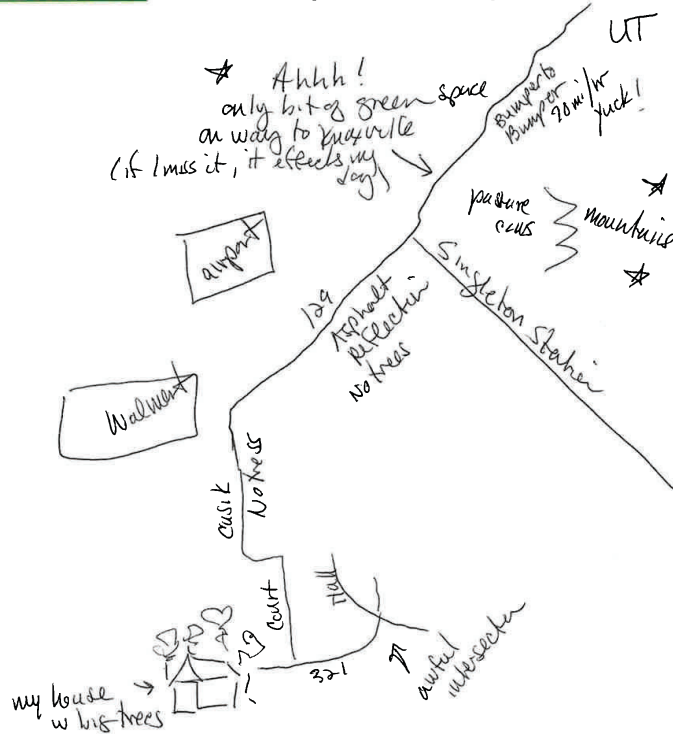 UT
Ahhh!
only bit of green space
on way to Knoxville
(if I miss it, it effects my
day)
Bumper to
Bumper 20 mi/hr
yuck!
pasture
cows
mountains
airport
Singleton Station
129
Asphalt
reflection
No trees
Walmart
Cusik
No tress
Court
Hall
321
awful
intersection
my house
w big trees